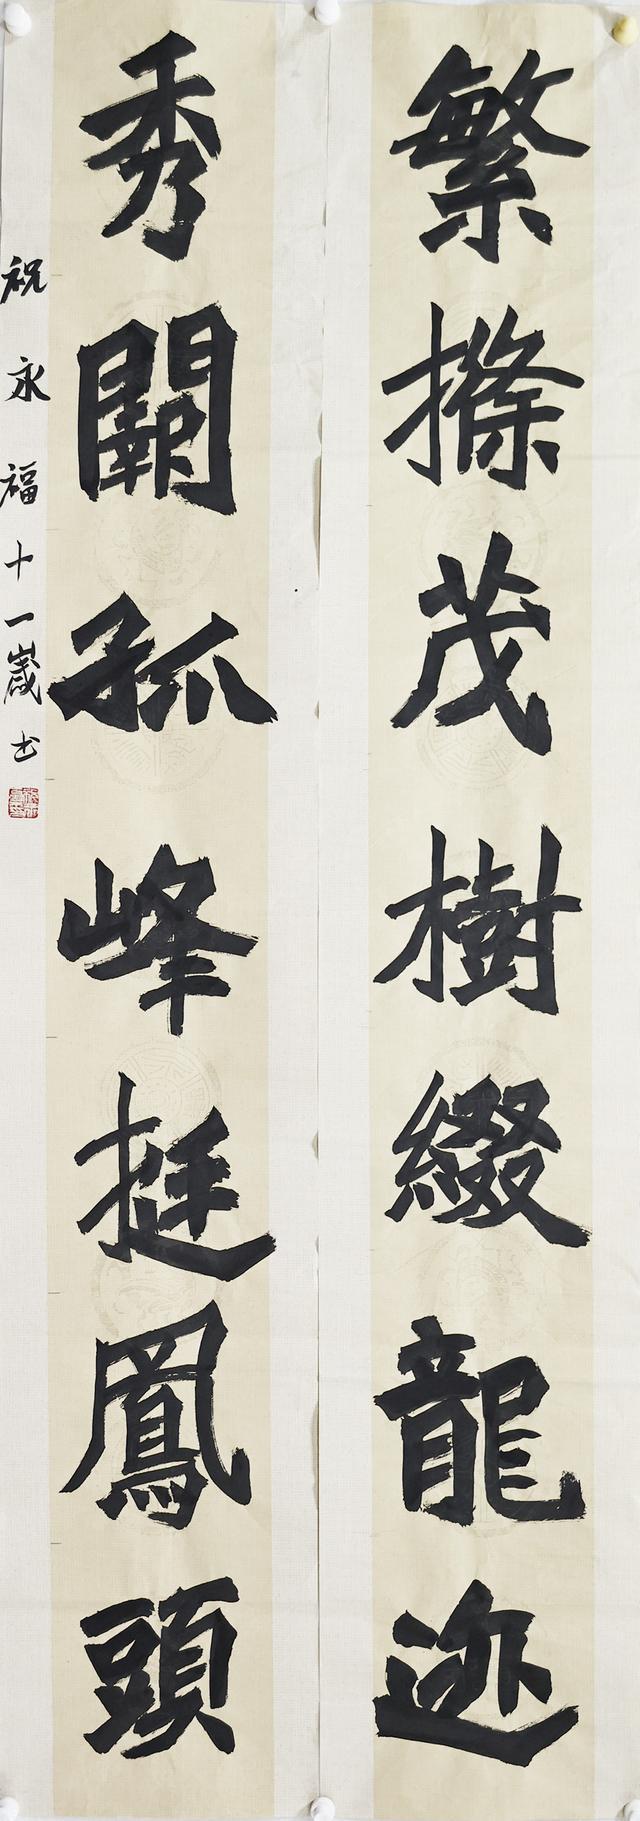 繁擦茂樹綴龍迹
秀闢孤峰挺鳳頭
祝永福十一歲书